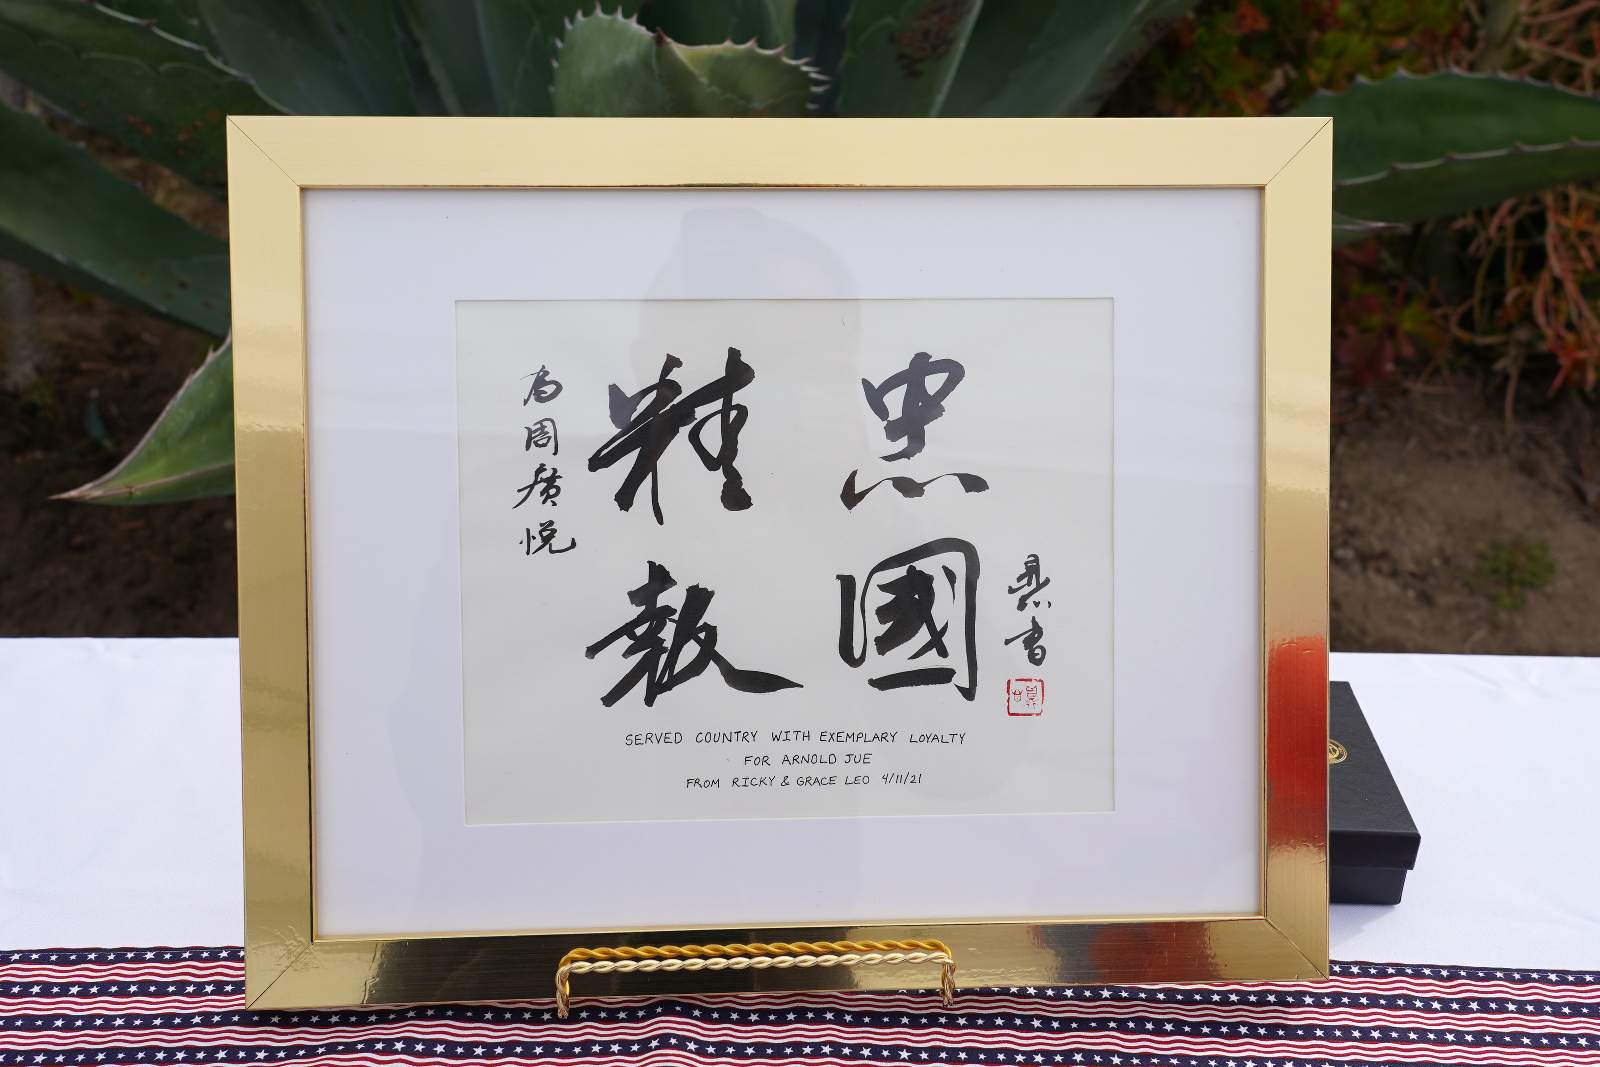 為周廣悦
精忠
報國
書
SERVED COUNTRY WITH EXEMPLARY LOYALTY
FOR ARNOLD JUE
FROM RICKY & GRACE LEO 4/11/21